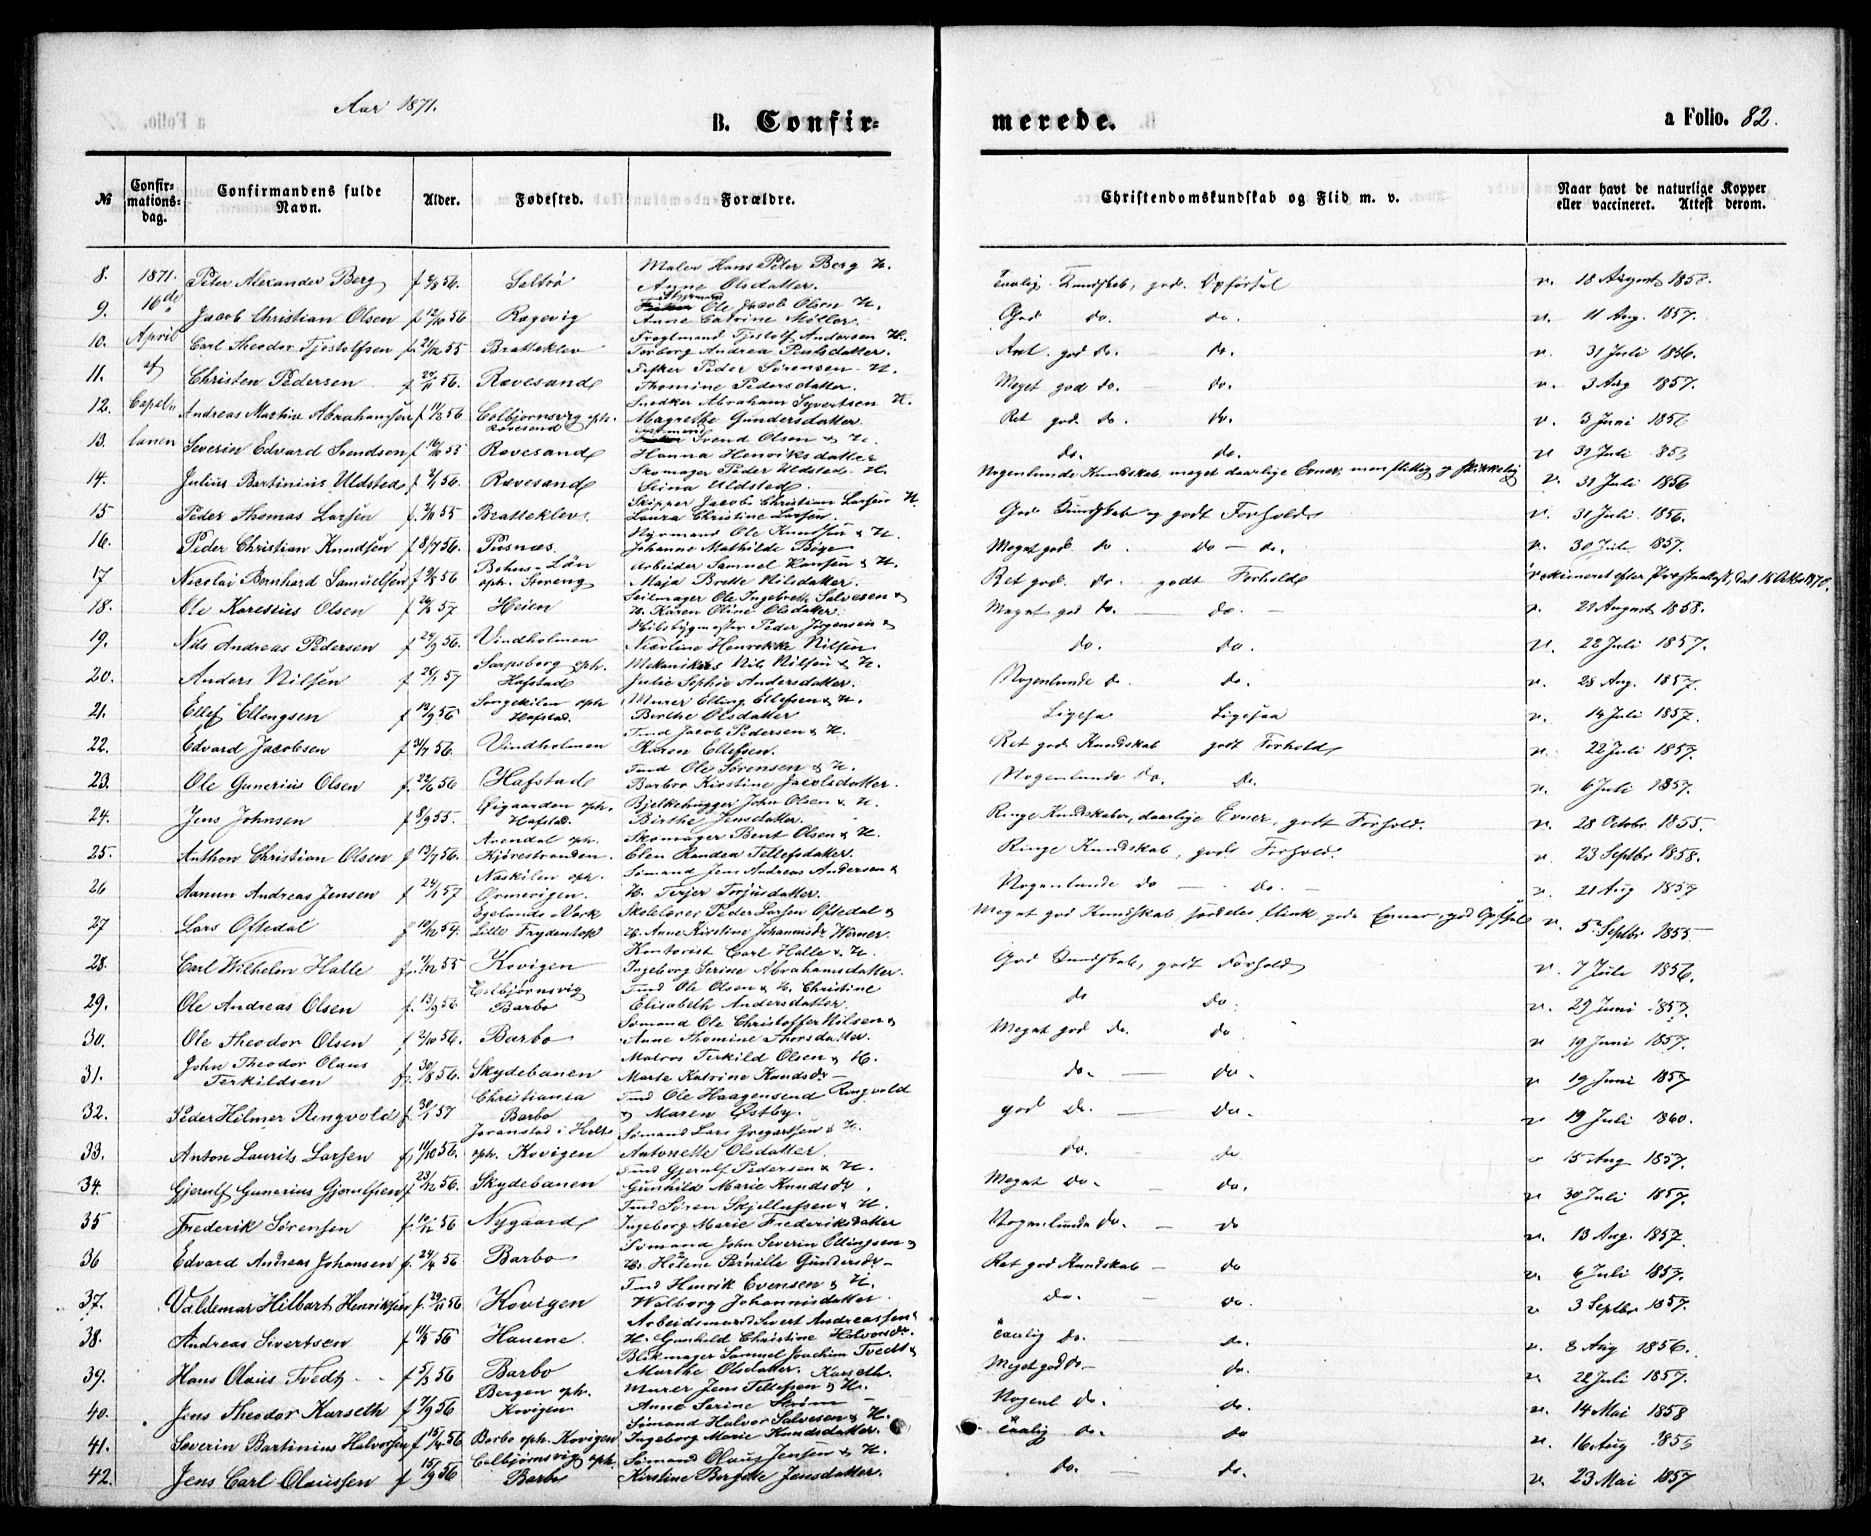 Aar 1871.
B. Confir-
merede.
a Folio. 82.
№
Confir-
mations-
dag.
Confirmandens fulde
Navn.
Alder.
Fødested.
Forældre.
Christendomskundskab og Flid m. v.
Naar havt de naturlige Kopper
eller vaccineret. Attest derom.
Maler Hans Peter Berg H.
8. 1871. Peter Alexander Berg Anne Olsdatter. god Opførsel v. 18 August 1858.
Styrmand
9. 16de Jacob Christian Olsen f 12/10 56 Ragevig Ole Jacob Olsen H. God do. do. v. 11 Aug. 1857.
Anne Catrine Møller.
10. April Carl Theodor Tjostolfsen f. 21/12 55 Bratteklev Fragtmand Tjostolf Andersen H. god do. do. v. 31 Juli 1856.
Torborg Andrea
11. Christen Pedersen f 24/11 56. Rævesand Fisker Peder Sørensen H. Meget god do. — do. v. 3 Aug 1857.
Thomine Pedersdatter.
12. Capel- Andreas Martin Abrahamsen f 11/2 56 Colbjørnsvig oph. Rævesand Snedker Abraham Syvertsen H. Ret god do. do. v. 3 Juni 1856
Magrethe Gundersdatter
13. lanen Severin Edvard Svendsen f 16/10 55 Rævesand Svend Olsen & H. do. do. v 31 Juli
Hanna Henriksdatter
14. Julius Bertinius Uldsted f 2/1 56. Rævesand Skomager Peder Uldsted H. Nogenlunde Kundskab meget daarlige Evner, men flittig og skikkelig v. 31 Juli 1856
Stina Uldsted.
15 Peder Thomas Larsen f. 2/11 55 Bratteklev. Skipper Jacob Christian Larsen H. God Kundskab og godt Forhold v. 31 Juli 1856.
Laura Christine Larsen.
16. Peder Christian Knudsen f 8/7 56. Pusnæs. Styrmand Ole Knudsen & H. Meget god do do — do. v. 30 Juli 1857.
Johanne Mathilde Bøge
17 Nicolai Bernhard Samuelsen f 2/8 56 Bohus-Län oph. Strøeng Arbeider Samuel Hansen & H. Ret god do. godt Forhold
Maja Britte Nilsdatter.
18. Ole Karesius Olsen f 26/2 57 Heien Seilmager Ole Ingebreth Salvesen & Meget god do. — do. — v. 21 August 1858.
H. Karen Oline Olsdatter.
19. Nils Andreas Pedersen f 24/9 56. Vindholmen Skibsbygmester Peder Jørgensen & do. do. v. 22 Juli 1857.
Nicoline Henrikke Nilsen
20. Anders Nilsen f 26/1 57 Sarpsborg oph. Hafstad Mekanikus Nils Nilsen & H. Nogenlunde do. do. v. 28 Aug. 1857.
Julie Sophie Andersdatter.
21. Ellef Ellingsen f 19/9 56 Songekilen oph Hafstad. Murer Elling Ellefsen & H. Ligesaa Ligesaa v. 14 Juli 1857.
Berthe Olsdatter
22. Edvard Jacobsen f 31/7 56. Vindholmen Tmd Jacob Pedersen & H. Ret god Kundskab godt Forhold v. 22 Juli 1857.
Karen Ellefsen.
23. Ole Gunerius Olsen f. 22/6 56 Hafstad Tmd Ole Sørensen & H. Nogenlunde do. do. v. 6 Juli 1857.
Barbro Kirstine Jacobsdatter.
24. Jens Johnsen f 8/9 55. Øigaarden oph. Hafstad. Bjelkehugger John Olsen & H. Ringe Kundskaber, daarlige Evner, godt Forhold. v. 28 Octobr 1855.
Birthe Jensdatter.
25. Anthon Christian Olsen f 13/7 56. Arendal oph. Kjørestranden. Skomager Bent Olsen & H. Ringe Kundskab, godt Forhold. v. 23 Septbr 1858.
Elen Randea Tellefsdatter.
26 Aanun Andreas Jensen f 24/1 57 Neskilen oph. Ormevigen. Sømand Jens Andreas Andersen & Nogenlunde do — do. — v. 21 Aug 1857
H. Terjer Torjusdatter.
27 Lars Oftedal f 19/10 54. Egelands Værk Lille Frydentop Skolelærer Peder Larsen Oftedal & Meget god Kundskab særdeles flink, gode Evner, god Opførsel v. 5 Septbr 1855
H. Anne Kirstine Johannisdr Werner.
28. Carl Wilhelm Halle f. 1/12 55 Kovigen Kontorist Carl Halle & H. God Kundskab, godt Forhold v. 7 Juli 1856.
Ingeborg Serine Abrahamsdatter.
29. Ole Andreas Olsen f. 13/9 56 Colbjørnsvig Barbo Tmd Ole Olsen & H. Christine do do. v. 29 Juni 1857.
Elisabeth Andersdatter.
30. Ole Theodor Olsen f 2/10 56. Barbo Sømand Ole Christoffer Nilsen & Meget god do. do v 19 Juni 1857.
Anne Thomine Thorsdatter.
31. John Theodor Olaus Terkildsen f. 30/8 56. Skydebanen Matros Terkild Olsen & H. do. — do. v 19 Juni 1857
Marte Katrine Knudsdr —
32. Peder Hilmer Ringvold f. 30/1 57 Christiania Barbo Tmd Ole Haagensend Ringvold god do. — do. v 19 Juli 1860.
& Maren Østby.
33. Anton Laurits Larsen f. 11/10 56. Joranstad i Holt oph. Kovigen Sømand Lars Gregartsen & H. do. do v 15 Aug 1857.
Antonette Olsdatter.
34. Gjerulf Gunerius Gjerulfsen f 23/12 56. Skydebanen Tmd Gjerulf Pedersen & H. Meget do. — do. v 30 Juli 1857.
Gunhild Marie Knudsdr.
35 Frederik Sørensen f. 10/12 56 Nygaard Tmd Søren Skjellufsen & H. Nogenlunde do. — do v. 13 Aug. 1857.
Ingeborg Marie Frederiksdatter
36 Edvard Andreas Johansen f. 24/4 56 Barbo Sømand John Severin Ellingsen & Ret god Kundskab — do v. 6 Juli 1857.
H. Helene Pernille Gundersdr —
37. Valdemar Hilbart Henriksen f. 29/11 56 Kovigen Tmd Henrik Evensen & H. do. — do. v 3 Septbr 1857.
Walborg Johannisdatter.
38. Andreas Sivertsen f 11/5 56 Hauene Arbeidsmand Sivert Andreassen & taalig do. — do. v. 8 Aug 1856.
H. Gunhild Christine Halvorsdr.
39. Hans Olaus Tvedt f 5/3 56 Barbo Blikmager Samuel Joachim Tvedt & Meget god do — do. v 22 Juli 1857.
Marthe Olsdatter. Karseth.
40. Jens Theodor Karseth f 7/9 56 Bergen oph. Kovigen Murer Jens Tellefsen & H. Nogenl do. do. v. 14 Mai 1858
Anne Serine Strøm —
41. Severin Bertinius Halvorsen f 15/4 56 Barbo oph. Kovigen Sømand Halvor Salvesen & H. taalig do. do v. 16 Aug
Ingeborg Marie Knudsdatter.
42. Jens Carl Olaussen f 15/9 56 Colbjørnsvig oph. Barbo Sømand Olaus Jensen & H. do. — do. v. 23 Mai 1857
Kirstine Bergitte Jensdatter.